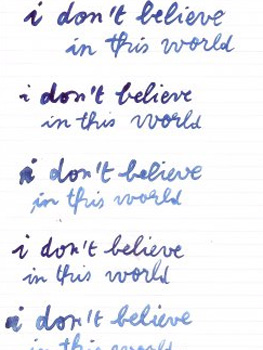 i don't believe
in this world
i don't believe
in this world
i don't believe
in this world
i don't believe
in this world
i don't believe
in this world